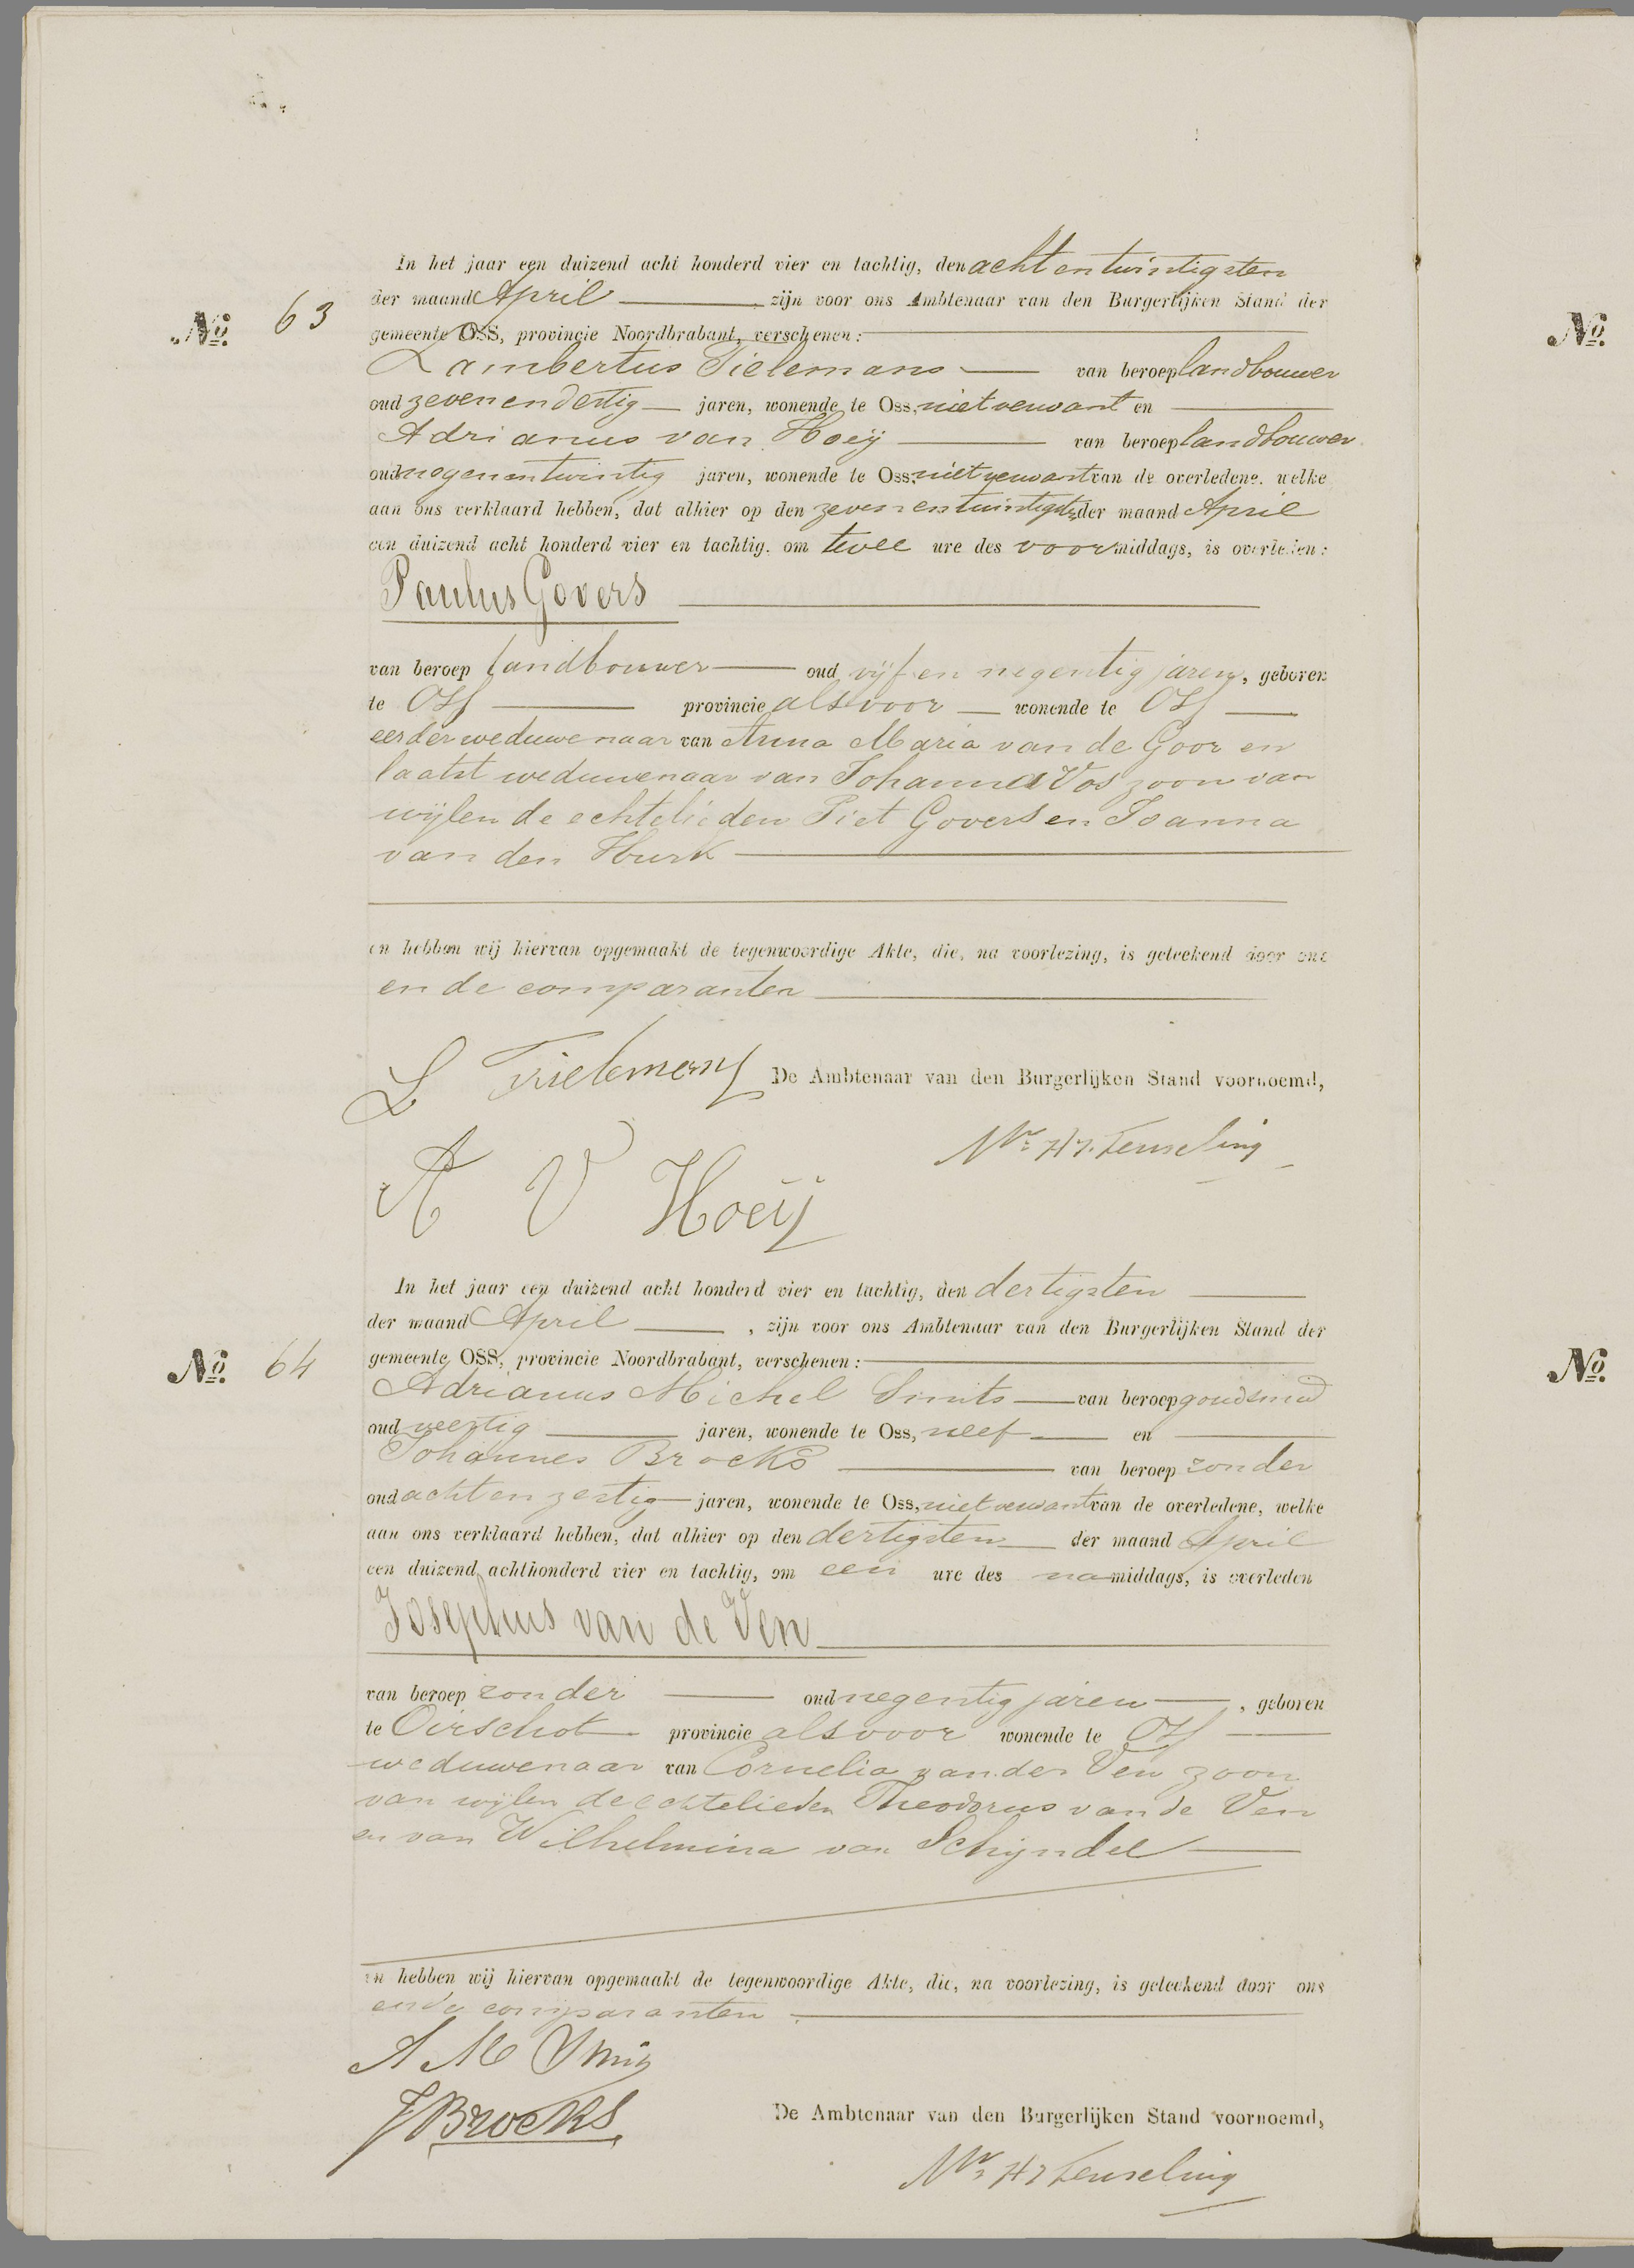 In het jaar een duizend acht honderd vier en tachtig, den acht en twintigsten
der maand April zijn voor ons Ambtenaar van den Burgerlijken Stand der
No. 63
gemeente OSS, provincie Noordbrabant, verschenen:
Lambertus Tielemans van beroep landbouwer
oud zeven en dertig jaren, wonende te Oss, niet verwant en
Adrianus van Hoeij van beroep landbouwer
oud negen en twintig jaren, wonende te Oss, niet verwant van de overledene, welke
aan ons verklaard hebben, dat alhier op den zeven en twintigsten der maand April
een duizend acht honderd vier en tachtig, om twee ure des voormiddags, is overleden:
Paulus Govers
van beroep landbouwer oud vijf en negentig jaren, geboren
te Oss provincie als voor wonende te Oss
eerder weduwenaar van Anna Maria van de Goor en
laatst weduwenaar van Johanna Vos zoon van
wijlen de echtelieden Piet Govers en Joanna
van den Hurk
en hebben wij hiervan opgemaakt de tegenwoordige Akte, die, na voorlezing, is geteekend door ons
en de comparanten
L Tielemans De Ambtenaar van den Burgerlijken Stand voornoemd,
A V Hoeij
In het jaar een duizend acht honderd vier en tachtig, den dertigsten
der maand April, zijn voor ons Ambtenaar van den Burgerlijken Stand der
No. 64
gemeente OSS, provincie Noordbrabant, verschenen:
Adrianus Michel Smits van beroep goudsmid
oud veertig jaren, wonende te Oss, neef en
Johannes Brocks van beroep zonder
oud acht en zestig jaren, wonende te Oss, niet verwant van de overledene, welke
aan ons verklaard hebben, dat alhier op den dertigsten der maand April
een duizend achthonderd vier en tachtig, om een ure des namiddags, is overleden
Josephus van de Ven
van beroep zonder oud negentig jaren, geboren
te Oirschot provincie als voor wonende te Oss
weduwenaar van Cornelia van der Ven zoon
van wijlen de echtelieden Theodorus van de Ven
en van Wilhelmina van Schijndel
en hebben wij hiervan opgemaakt de tegenwoordige Akte, die, na voorlezing, is geteekend door ons
en de comparanten
A M Smits
J Brocks
De Ambtenaar van den Burgerlijken Stand voornoemd,
No.
No.